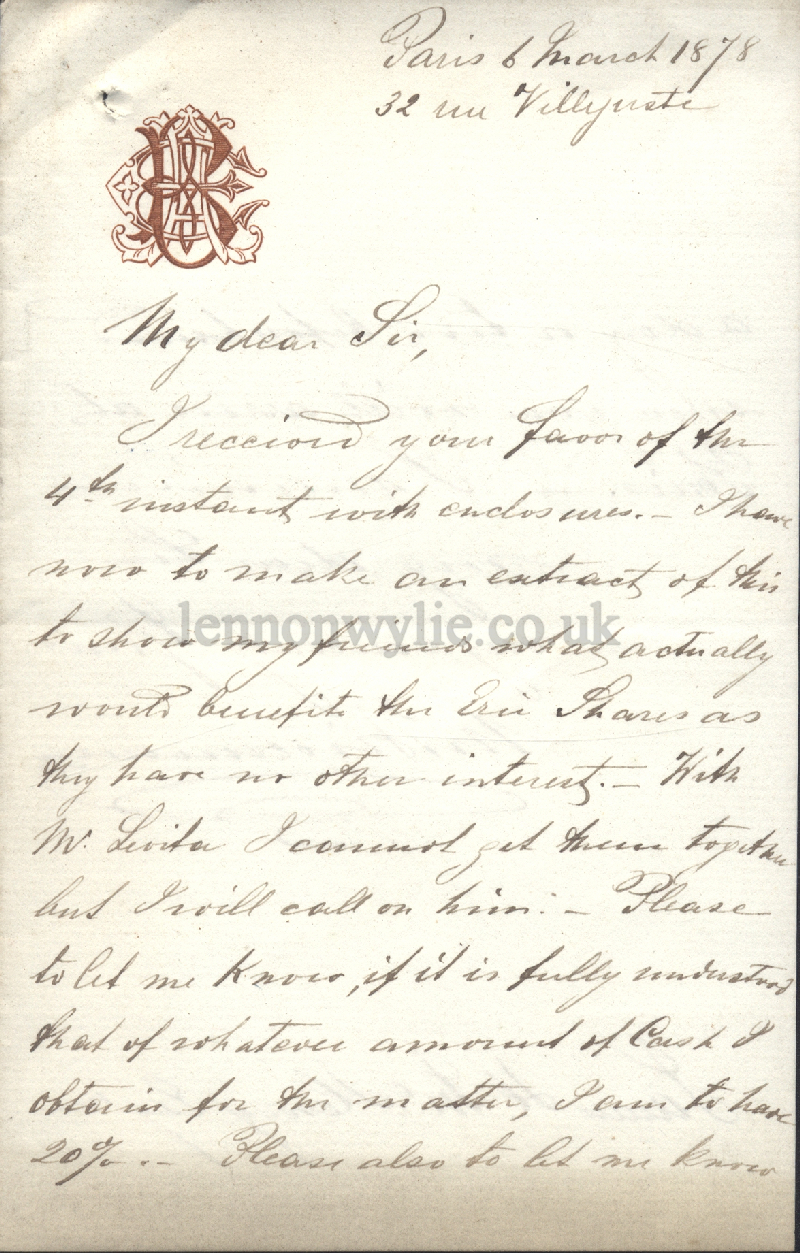 Paris 6 March 1878
32 rue Villejuste
My dear Sir,
I received your favor of the
4th instant with enclosures. – I have
now to make an extract of this
to show my friends what actually
would benefit the Erie Shares as
they have no other interest. – With
Mr. Levita I cannot get them together
but I will call on him. – Please
to let me know, if it is fully understood
that of whatever amount of Cash I
obtain for the matter, I am to have
20%. – Please also to let me know
lennonwylie.co.uk